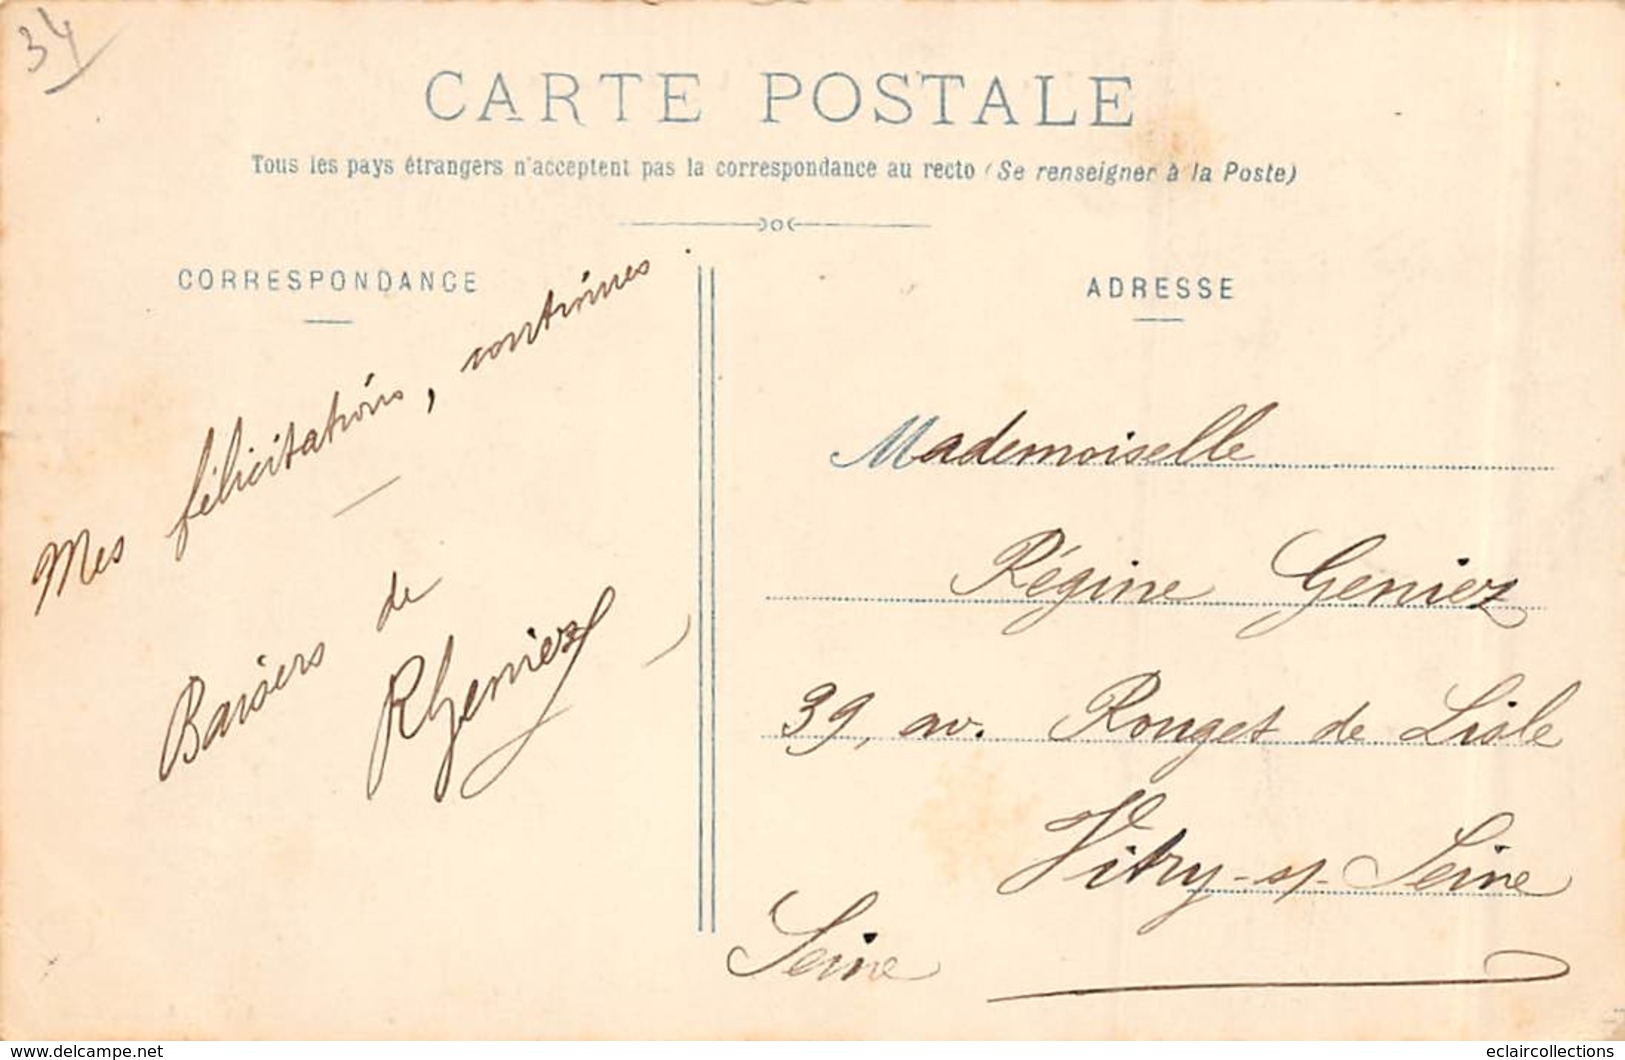 34
CARTE POSTALE
Tous les pays étrangers n'acceptent pas la correspondance au recto (Se renseigner à la Poste)
CORRESPONDANCE
ADRESSE
Mes félicitations, continues
Baisers de
RGeniez
Mademoiselle
Régine Geniez
39, av. Rouget de Lisle
Vitry-s/-Seine
Seine
www.delcampe.net
eclaircollections